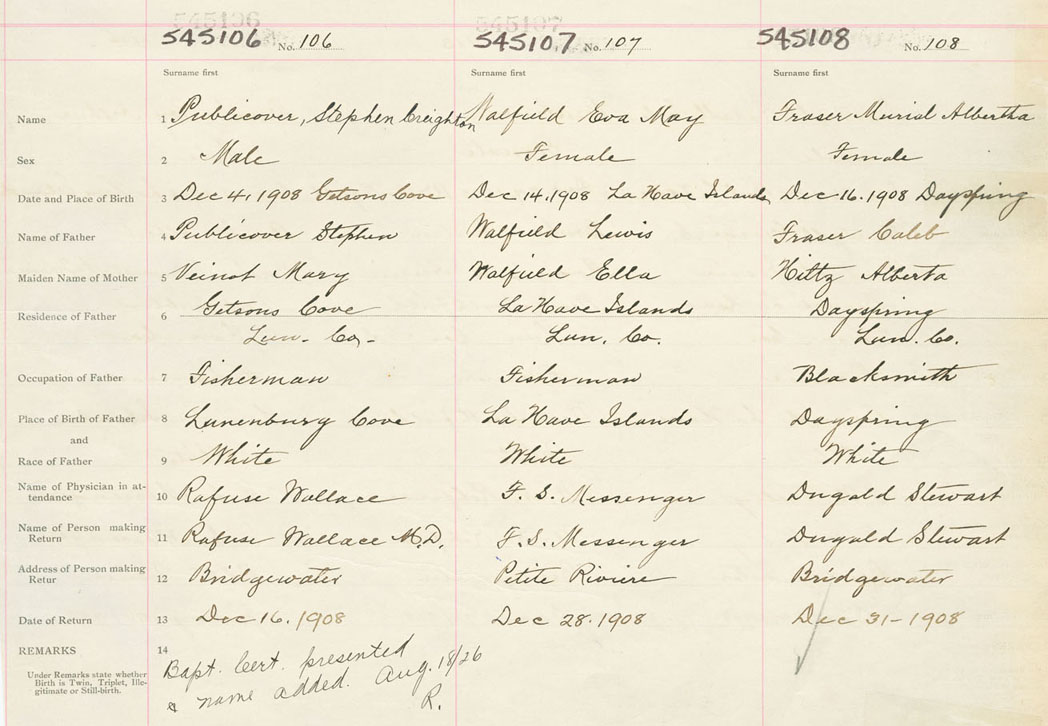 545106 No. 106 545107 No. 107 545108 No. 108
Surname first Surname first Surname first
Name 1 Publicover, Stephen Creighton Walfield Eva May Fraser Murial Albertha
Sex 2 Male Female Female
Date and Place of Birth 3 Dec 4, 1908 Getsons Cove Dec 14, 1908 La Have Islands Dec 16. 1908 Dayspring
Name of Father 4 Publicover Stephen Walfield Lewis Fraser Caleb
Maiden Name of Mother 5 Veinot Mary Walfield Ella Hiltz Alberta
Residence of Father 6 Getsons Cove La Have Islands Dayspring
Lun. Co. Lun. Co. Lun. Co.
Occupation of Father 7 Fisherman Fisherman Blacksmith
Place of Birth of Father 8 Lunenburg Cove La Have Islands Dayspring
and
Race of Father 9 White White White
Name of Physician in at-
tendance 10 Rafuse Wallace F. S. Messenger Dugald Stewart
Name of Person making
Return 11 Rafuse Wallace M.D. F. S. Messenger Dugald Stewart
Address of Person making
Retur 12 Bridgewater Petite Riviere Bridgewater
Date of Return 13 Dec 16. 1908 Dec 28. 1908 Dec 31-1908
REMARKS 14 Bapt. Cert. presented
Under Remarks state whether
Birth is Twin, Triplet, Ille-
gitimate or Still-birth.
& name added. Aug. 18/26
R.